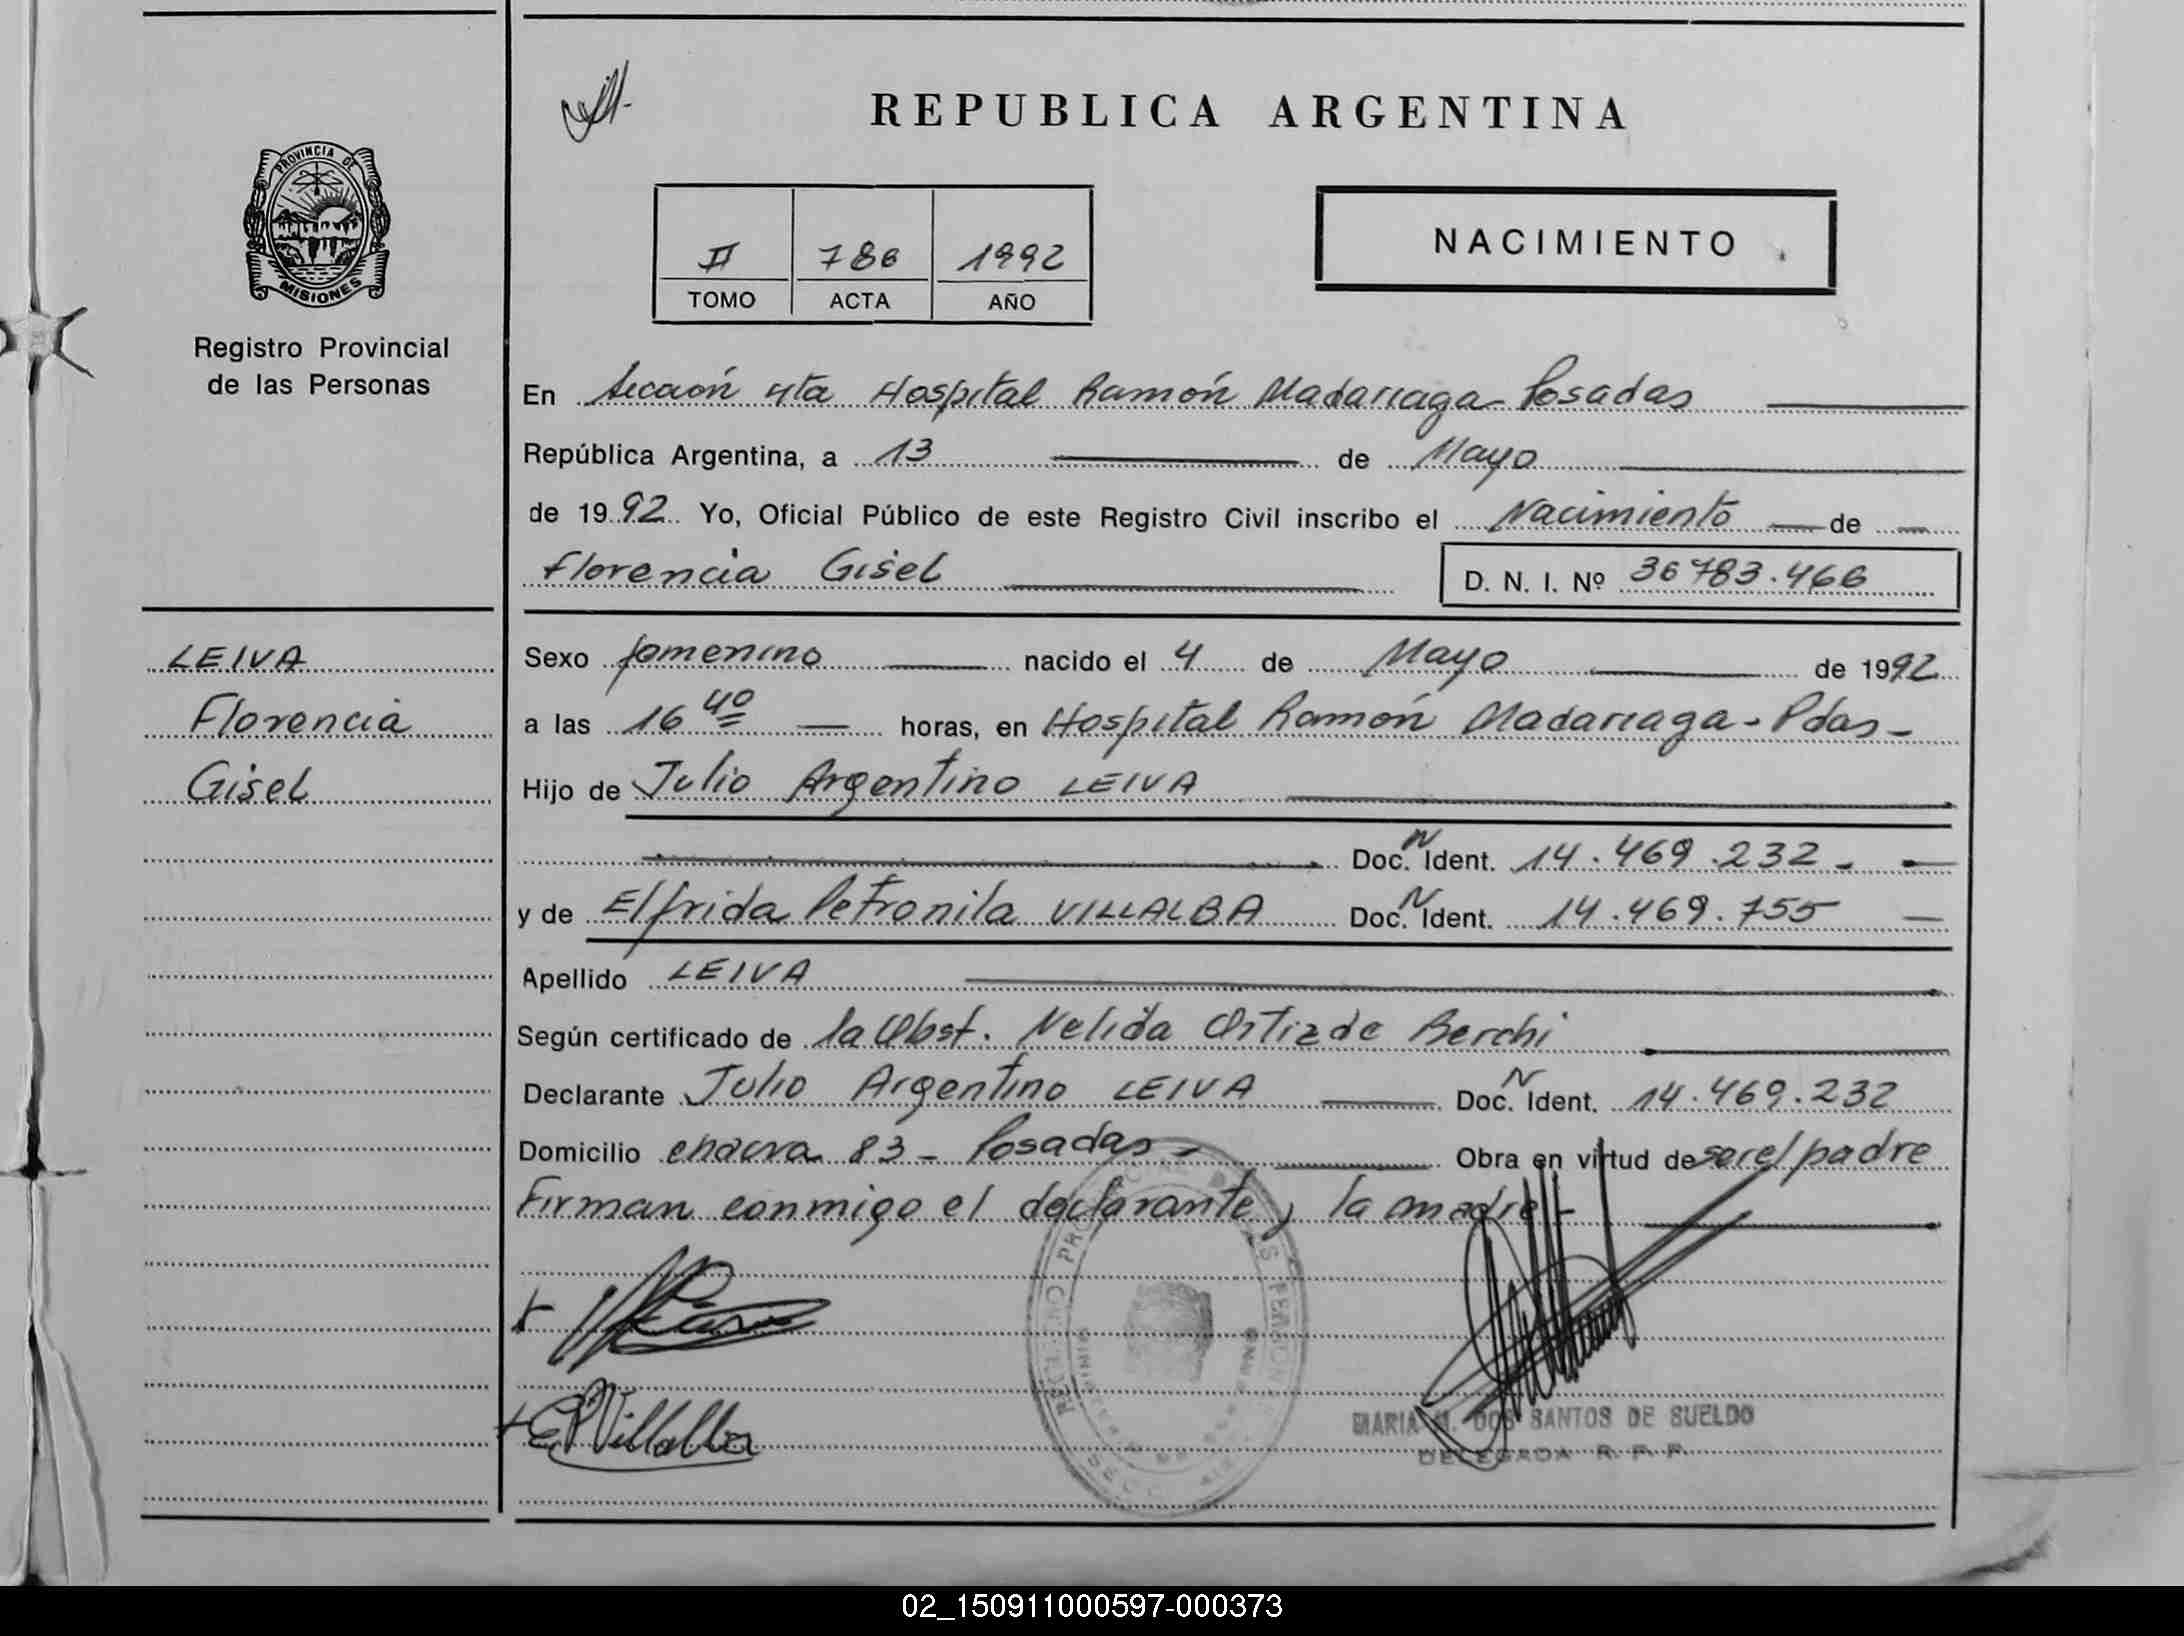 REPUBLICA ARGENTINA
PROVINCIA DE
MISIONES
Registro Provincial
de las Personas
II 786 1992
TOMO ACTA AÑO
NACIMIENTO
En Sección 4ta Hospital Ramón Madariaga Posadas
República Argentina, a 13 de Mayo
de 1992 Yo, Oficial Público de este Registro Civil inscribo el Nacimiento de
Florencia Gisel D. N. I. Nº 36783.466
LEIVA
Florencia
Gisel
Sexo femenino nacido el 4 de Mayo de 1992
a las 16 40 horas, en Hospital Ramón Madariaga - Pdas -
Hijo de Julio Argentino LEIVA
Doc. N Ident. 14.469.232 -
y de Elfrida Petronila VILLALBA Doc. N Ident. 14.469.755
Apellido LEIVA
Según certificado de la Obst. Nelida Ortiz de Berchi
Declarante Julio Argentino LEIVA Doc. N Ident. 14.469.232
Domicilio chacra 83 - Posadas - Obra en virtud de ser el padre
Firman conmigo el declarante y la madre -
E P Villalba
MARIA M. DOS SANTOS DE SUELDO
DELEGADA R. P. P.
02_150911000597-000373